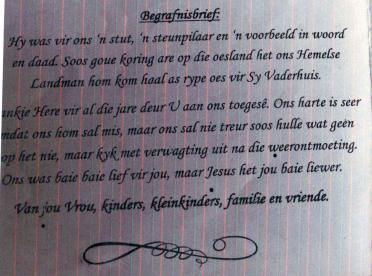 Begrafnisbrief:
Hy was vir ons 'n stut, 'n steunpilaar en 'n voorbeeld in woord
en daad. Soos goue koring are op die oesland het ons Hemelse
Landman hom kom haal as rype oes vir Sy Vaderhuis.
ankie Here vir al die jare deur U aan ons toegesê. Ons harte is seer
mdat ons hom sal mis, maar ons sal nie treur soos hulle wat geen
op het nie, maar kyk met verwagting uit na die weerontmoeting.
Ons was baie baie lief vir jou, maar Jesus het jou baie liewer.
Van jou Vrou, kinders, kleinkinders, familie en vriende.